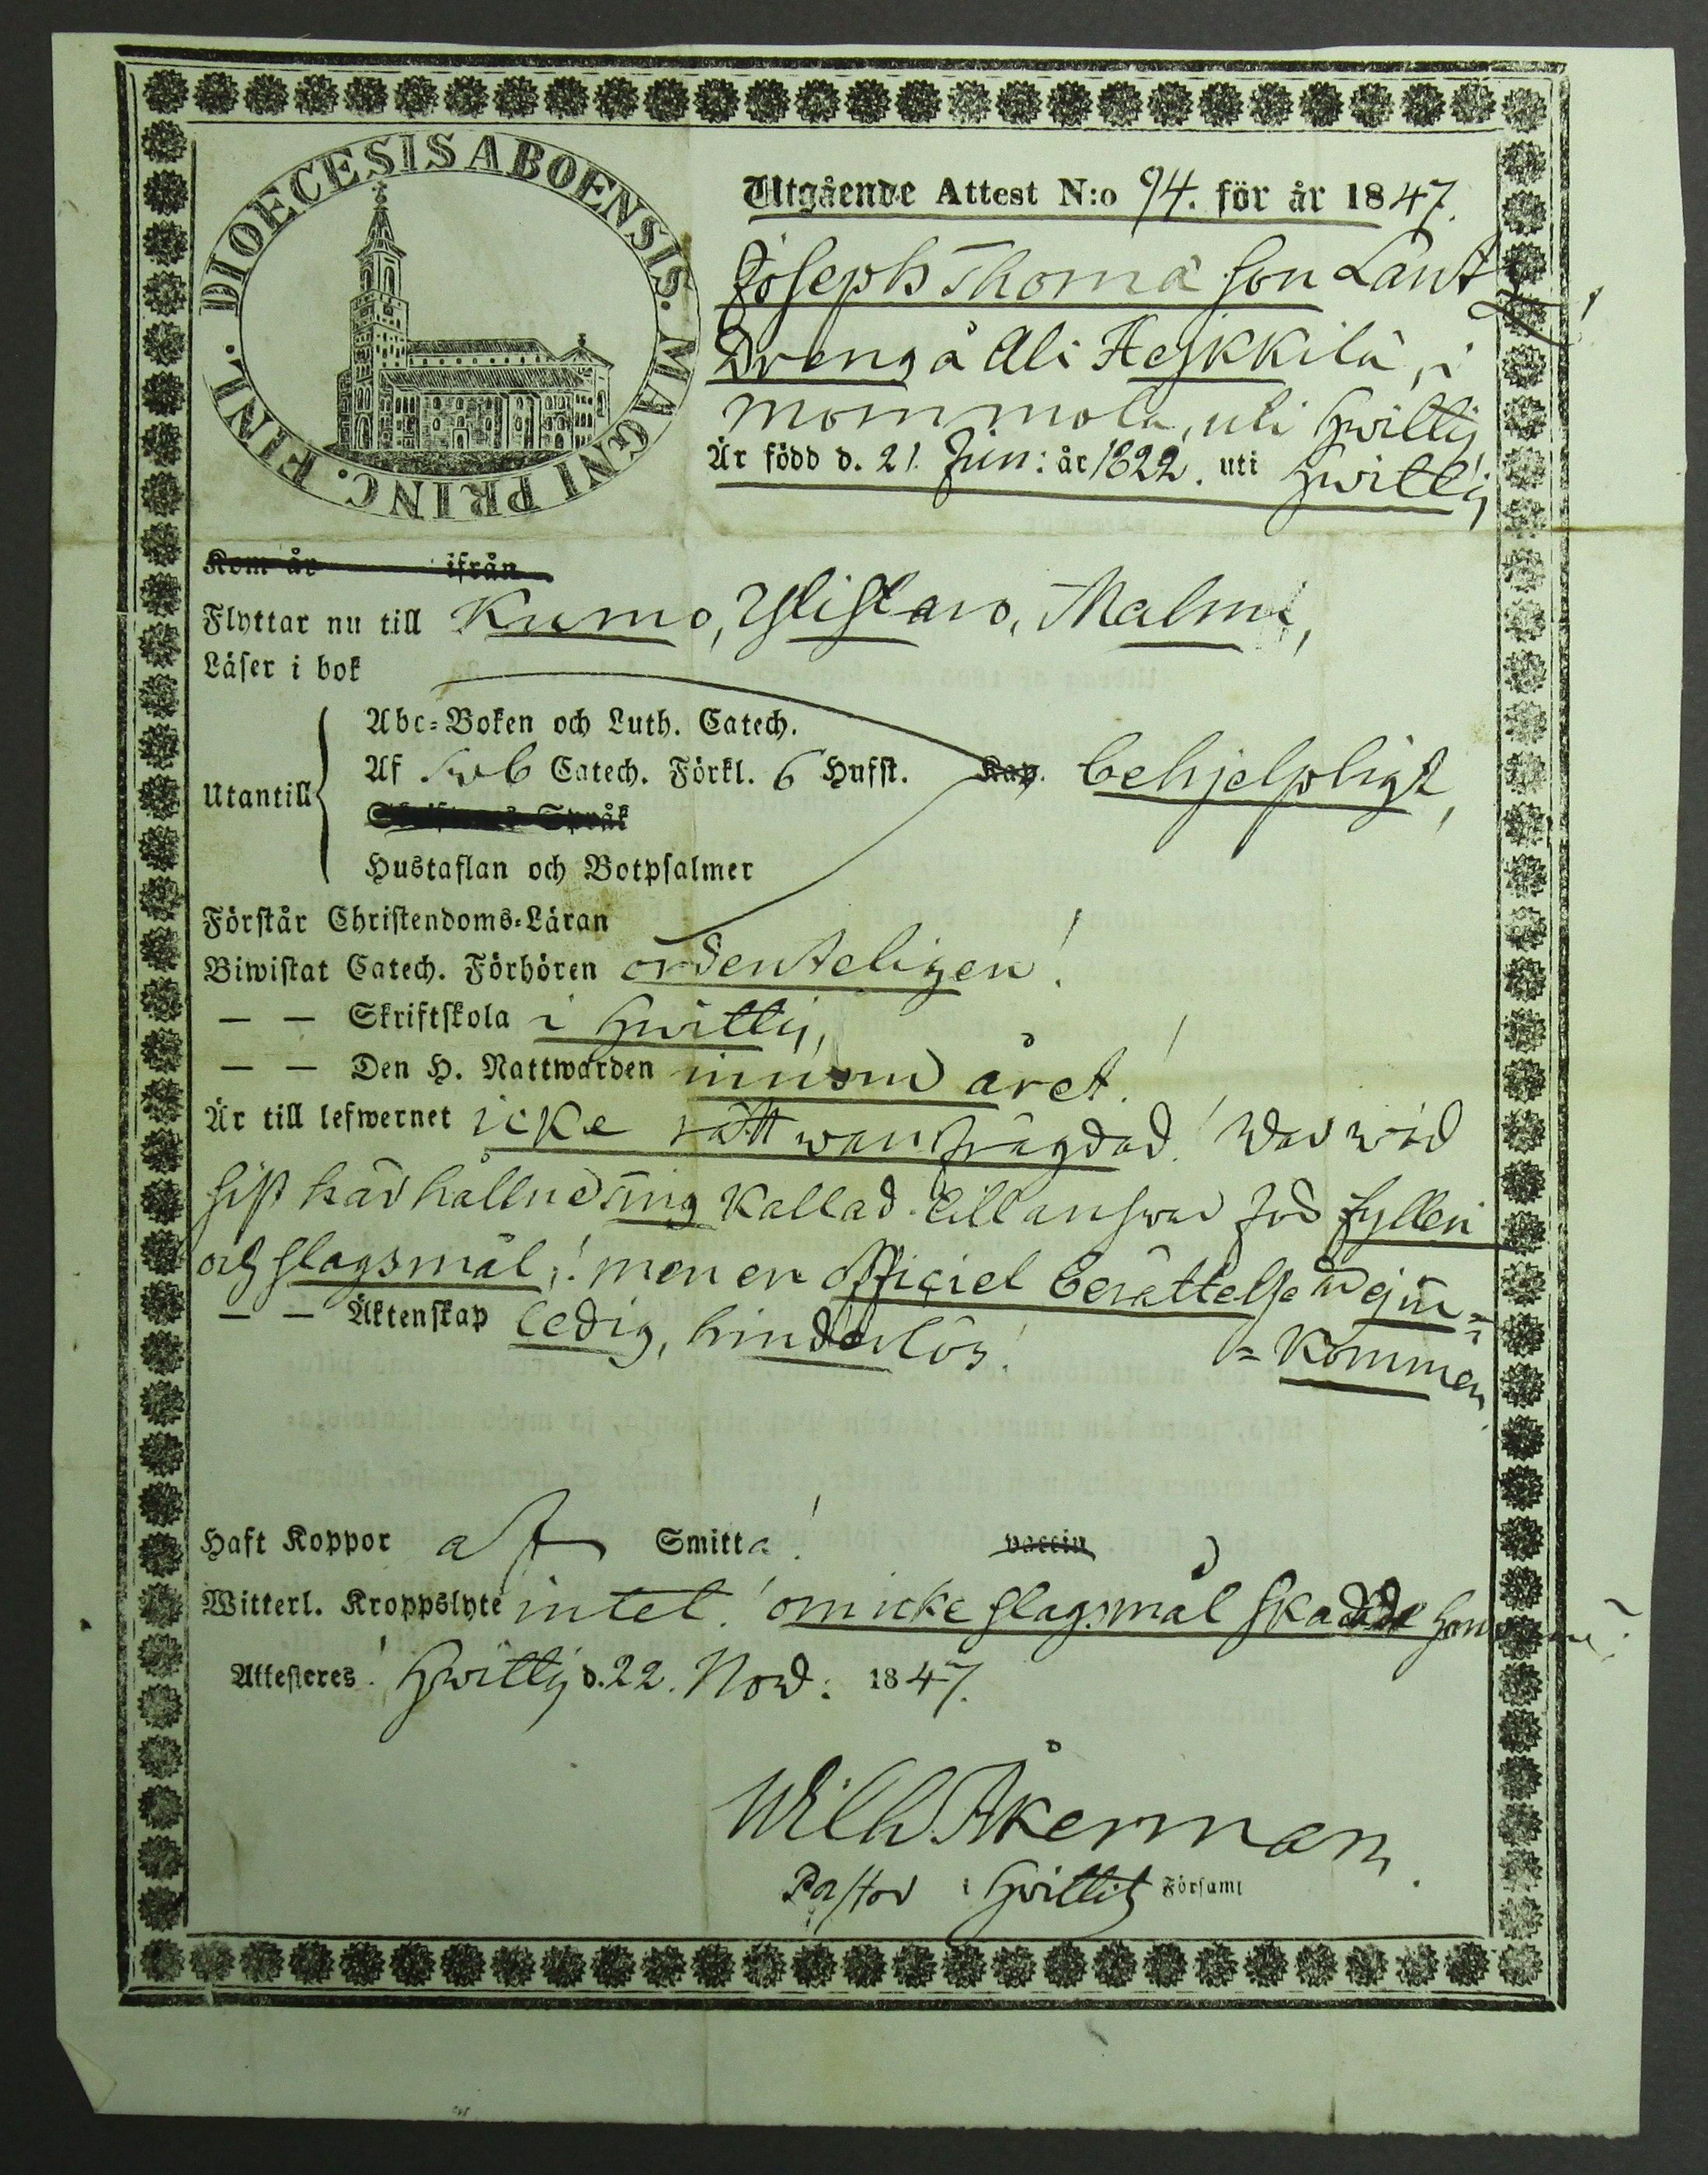 DIOECESIS ABOENSIS. MAGNI PRINC. FINL.
Utgående Attest N:o 94. för år 1847.
Joseph Thomä son Lant
Dreng å Ali Heikkilä, i
Mommola, uti Hwittis
Är född d. 21. Jun: år 1822. uti Hwittis
Kom år ifrån
Flyttar nu till Kumo, Ylistaro, Malmi,
Läser i bok
Abc-Boken och Luth. Catech.
Utantill Af Sweb Catech. Förkl. 6 Hufst. Kap. behjelpligt,
Språk
Hustaflan och Botpsalmer
Förstår Christendoms-Läran
Biwistat Catech. Förhören ordenteligen!
— — Skriftskola i Hwittis,
— — Den H. Nattwarden innom året!
Är till lefwernet icke rätt wanfrägdad! War wid
sist här hållne Ting kallad till answar för fylleri
och slagsmål,! men en officiel berättelse är ej in=
— — Äktenskap ledig, hinderlös! =kommen
Haft Koppor af Smitta! vaccin
Witterl. Kroppslyte intet! om icke slagsmål skadade
Attesteres! Hwittis d. 22. Nov: 1847.
Wilh. Åkerman.
Pastor i Hwittis Församl